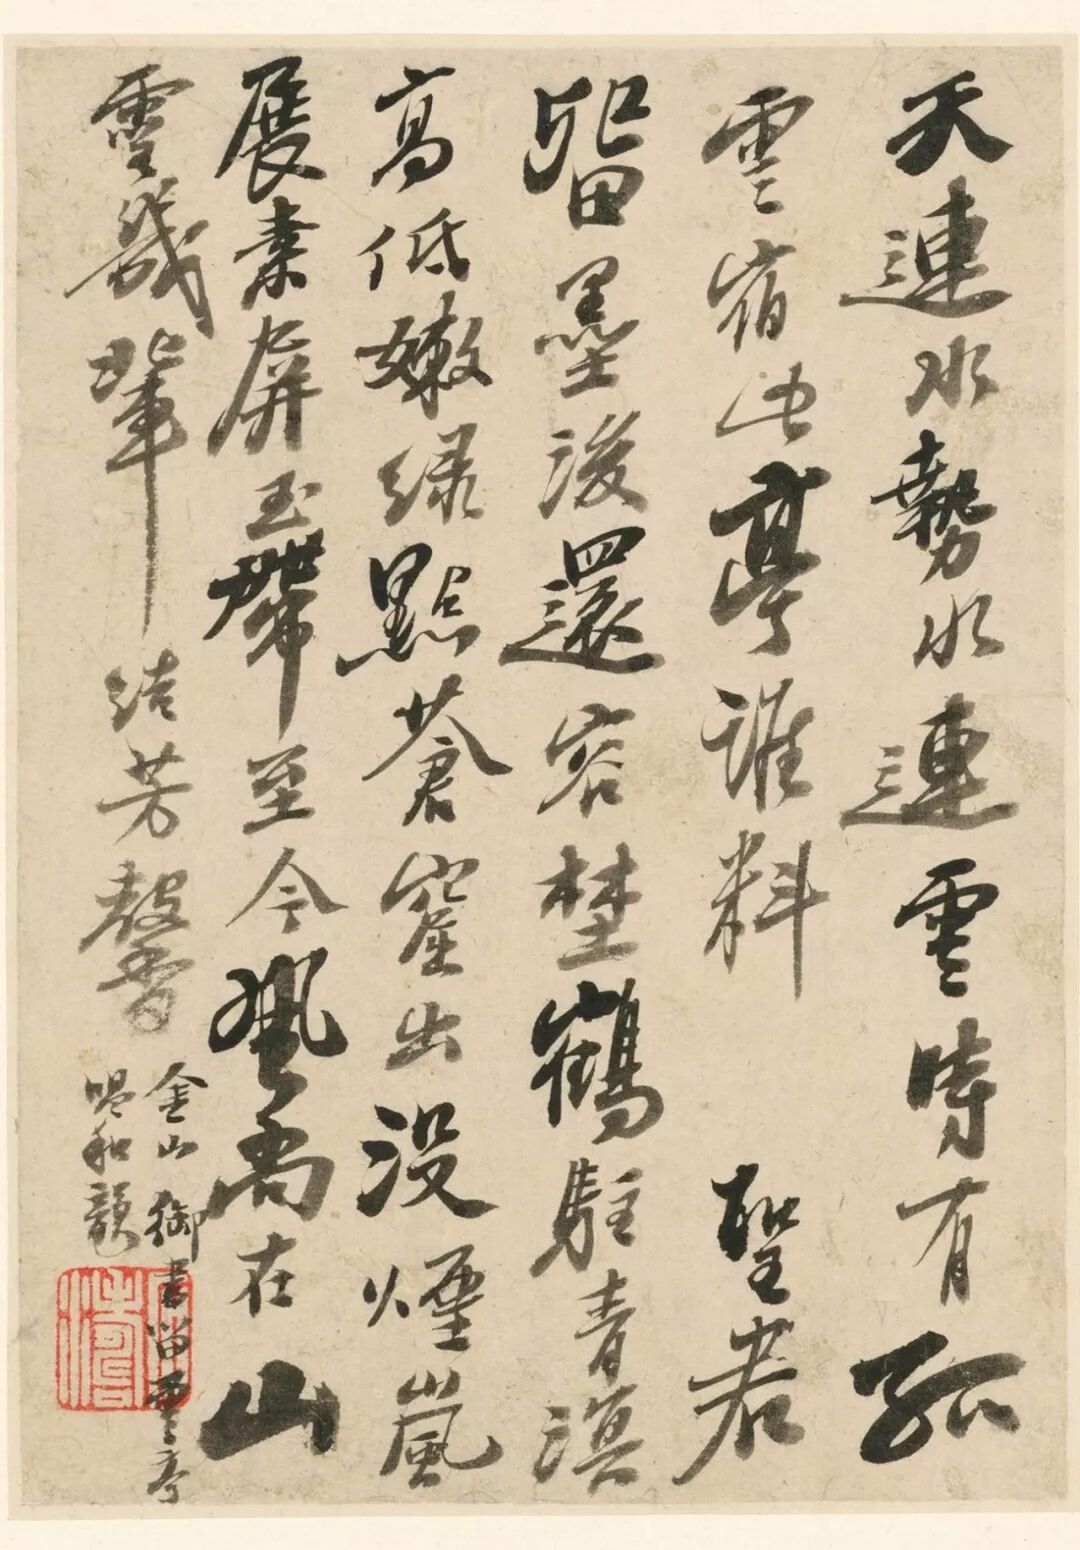 天連水勢水連雲時有孤
雲宿此亭誰料聖君
留墨後還容埜鶴駐青溟
高低嫩綠點蒼崖出沒煙嵐
展素屏玉帶至今風尚在山
靈幾輩結芳馨
金山御書留雲亭
和韻